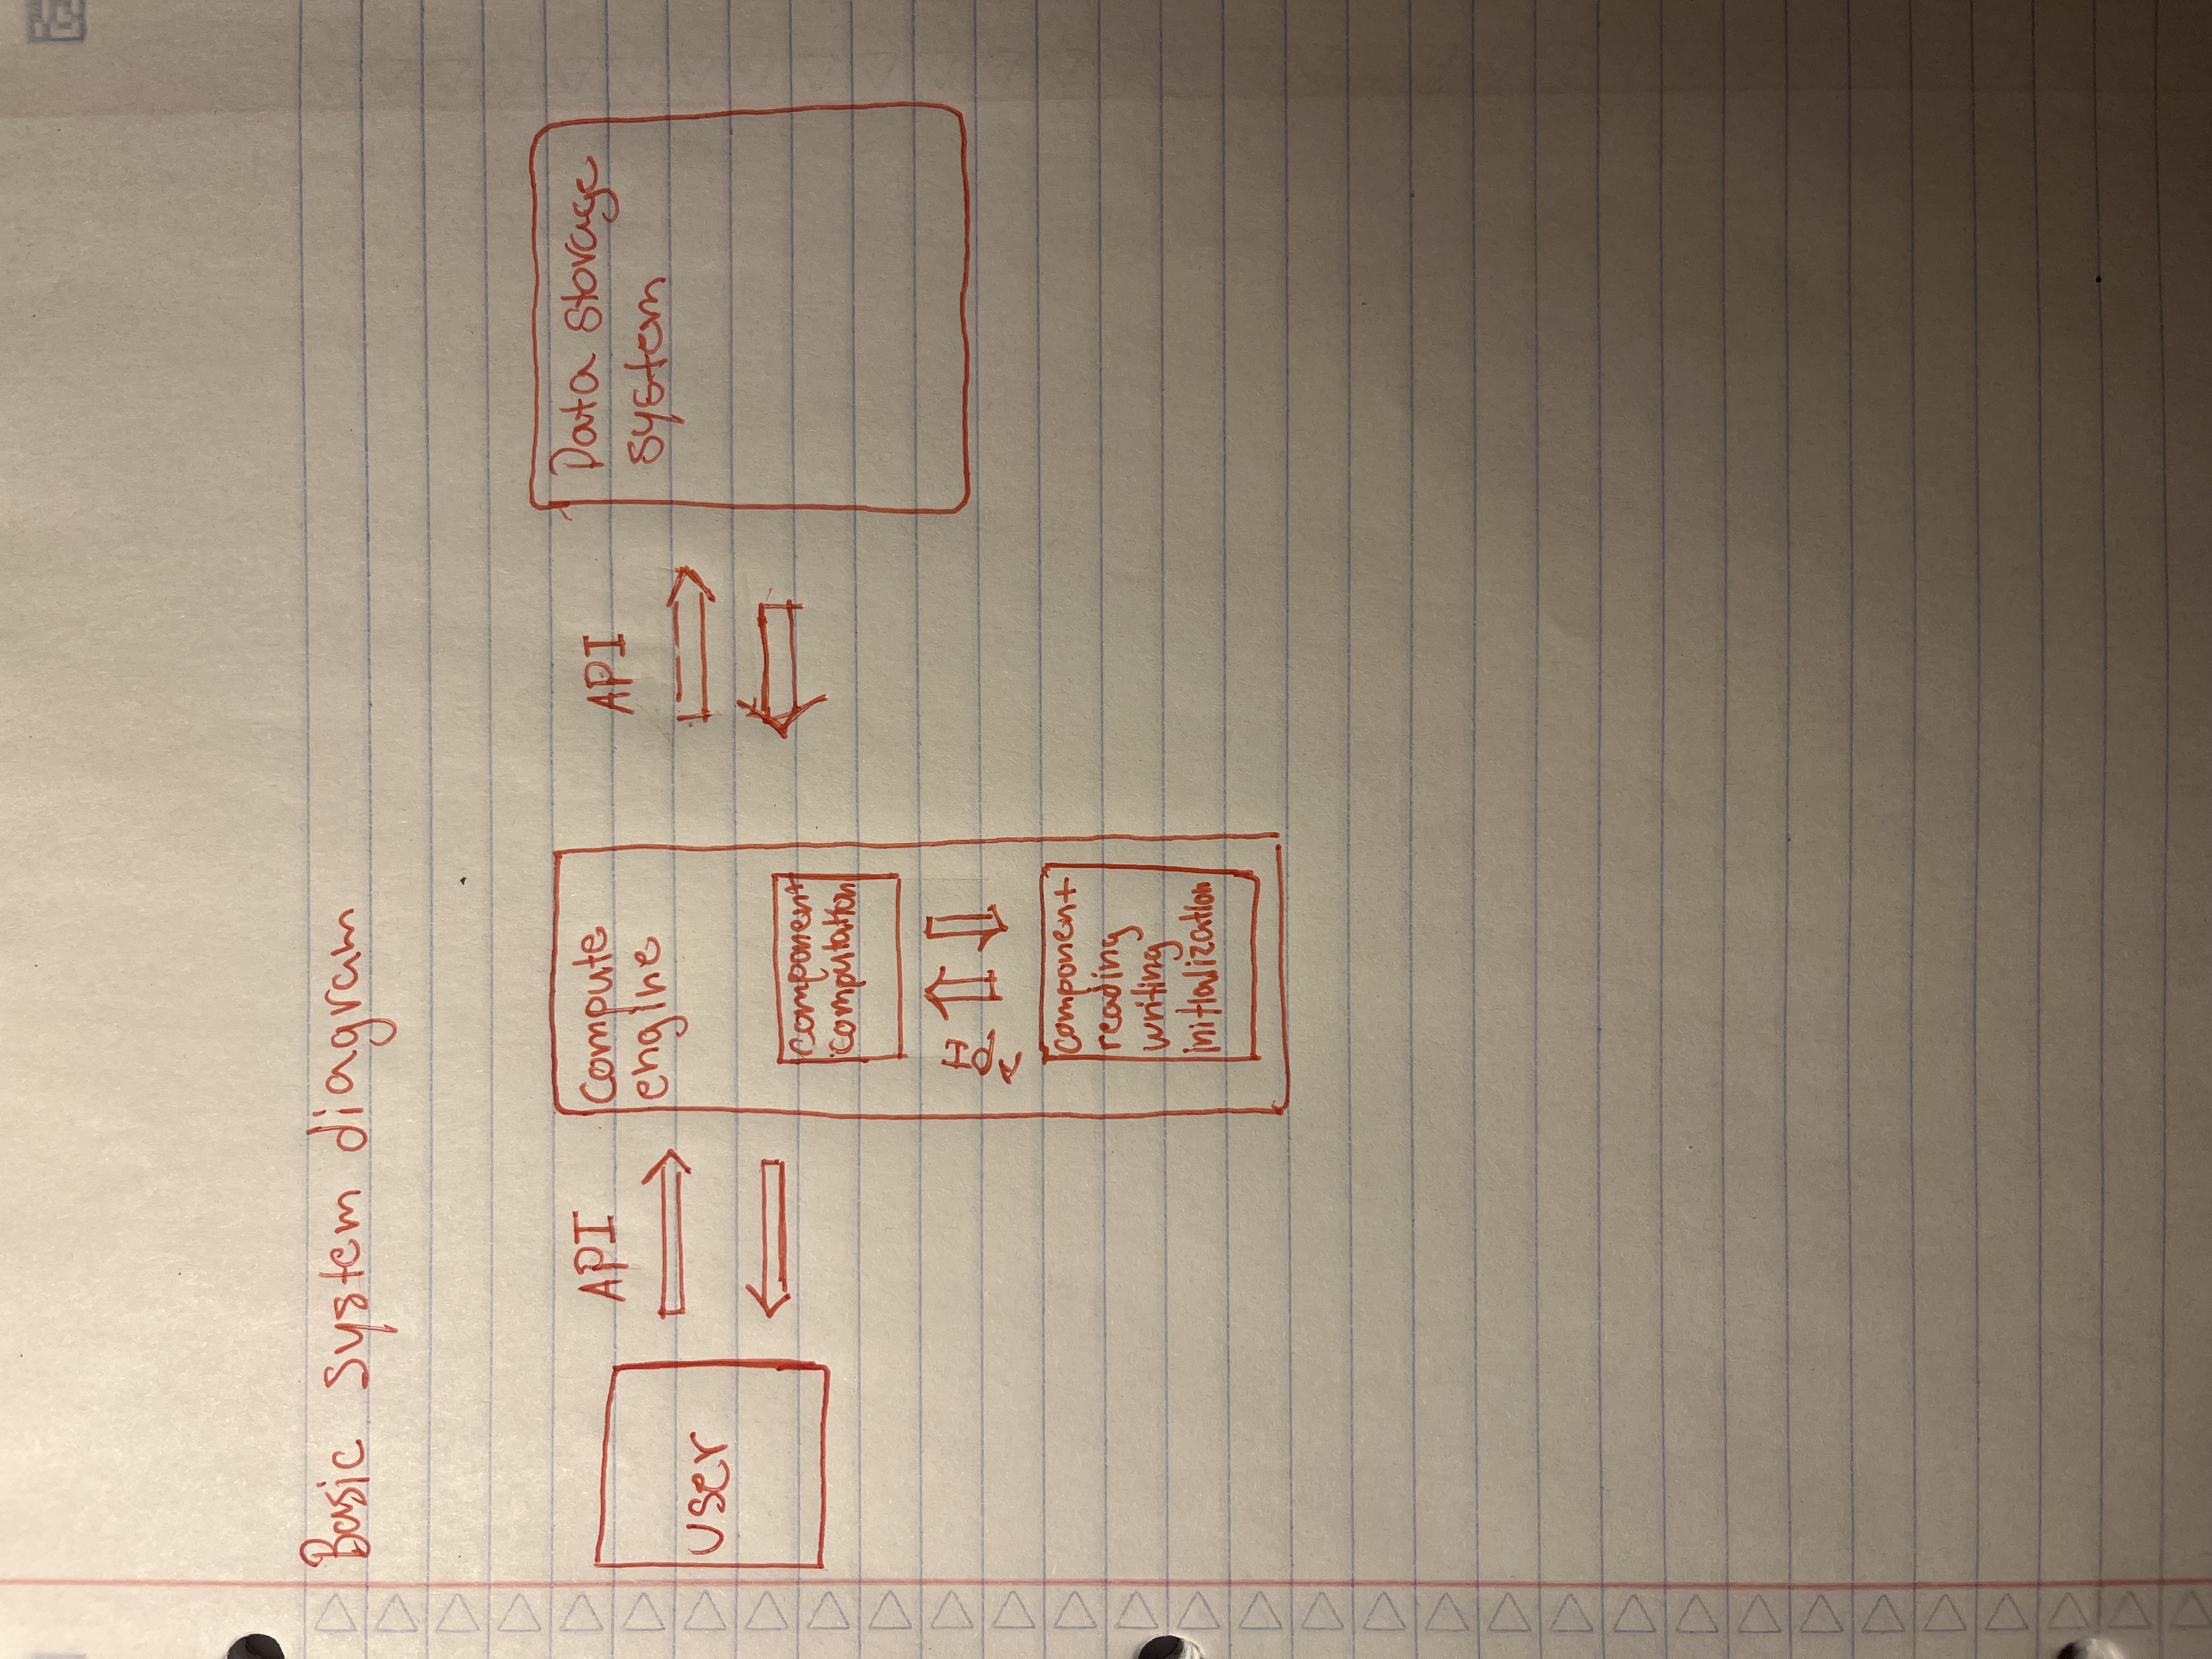 Basic system diagram
user
API
Compute
engine
component
computation
API
component
reading
writing
initialization
API
Data storage
system